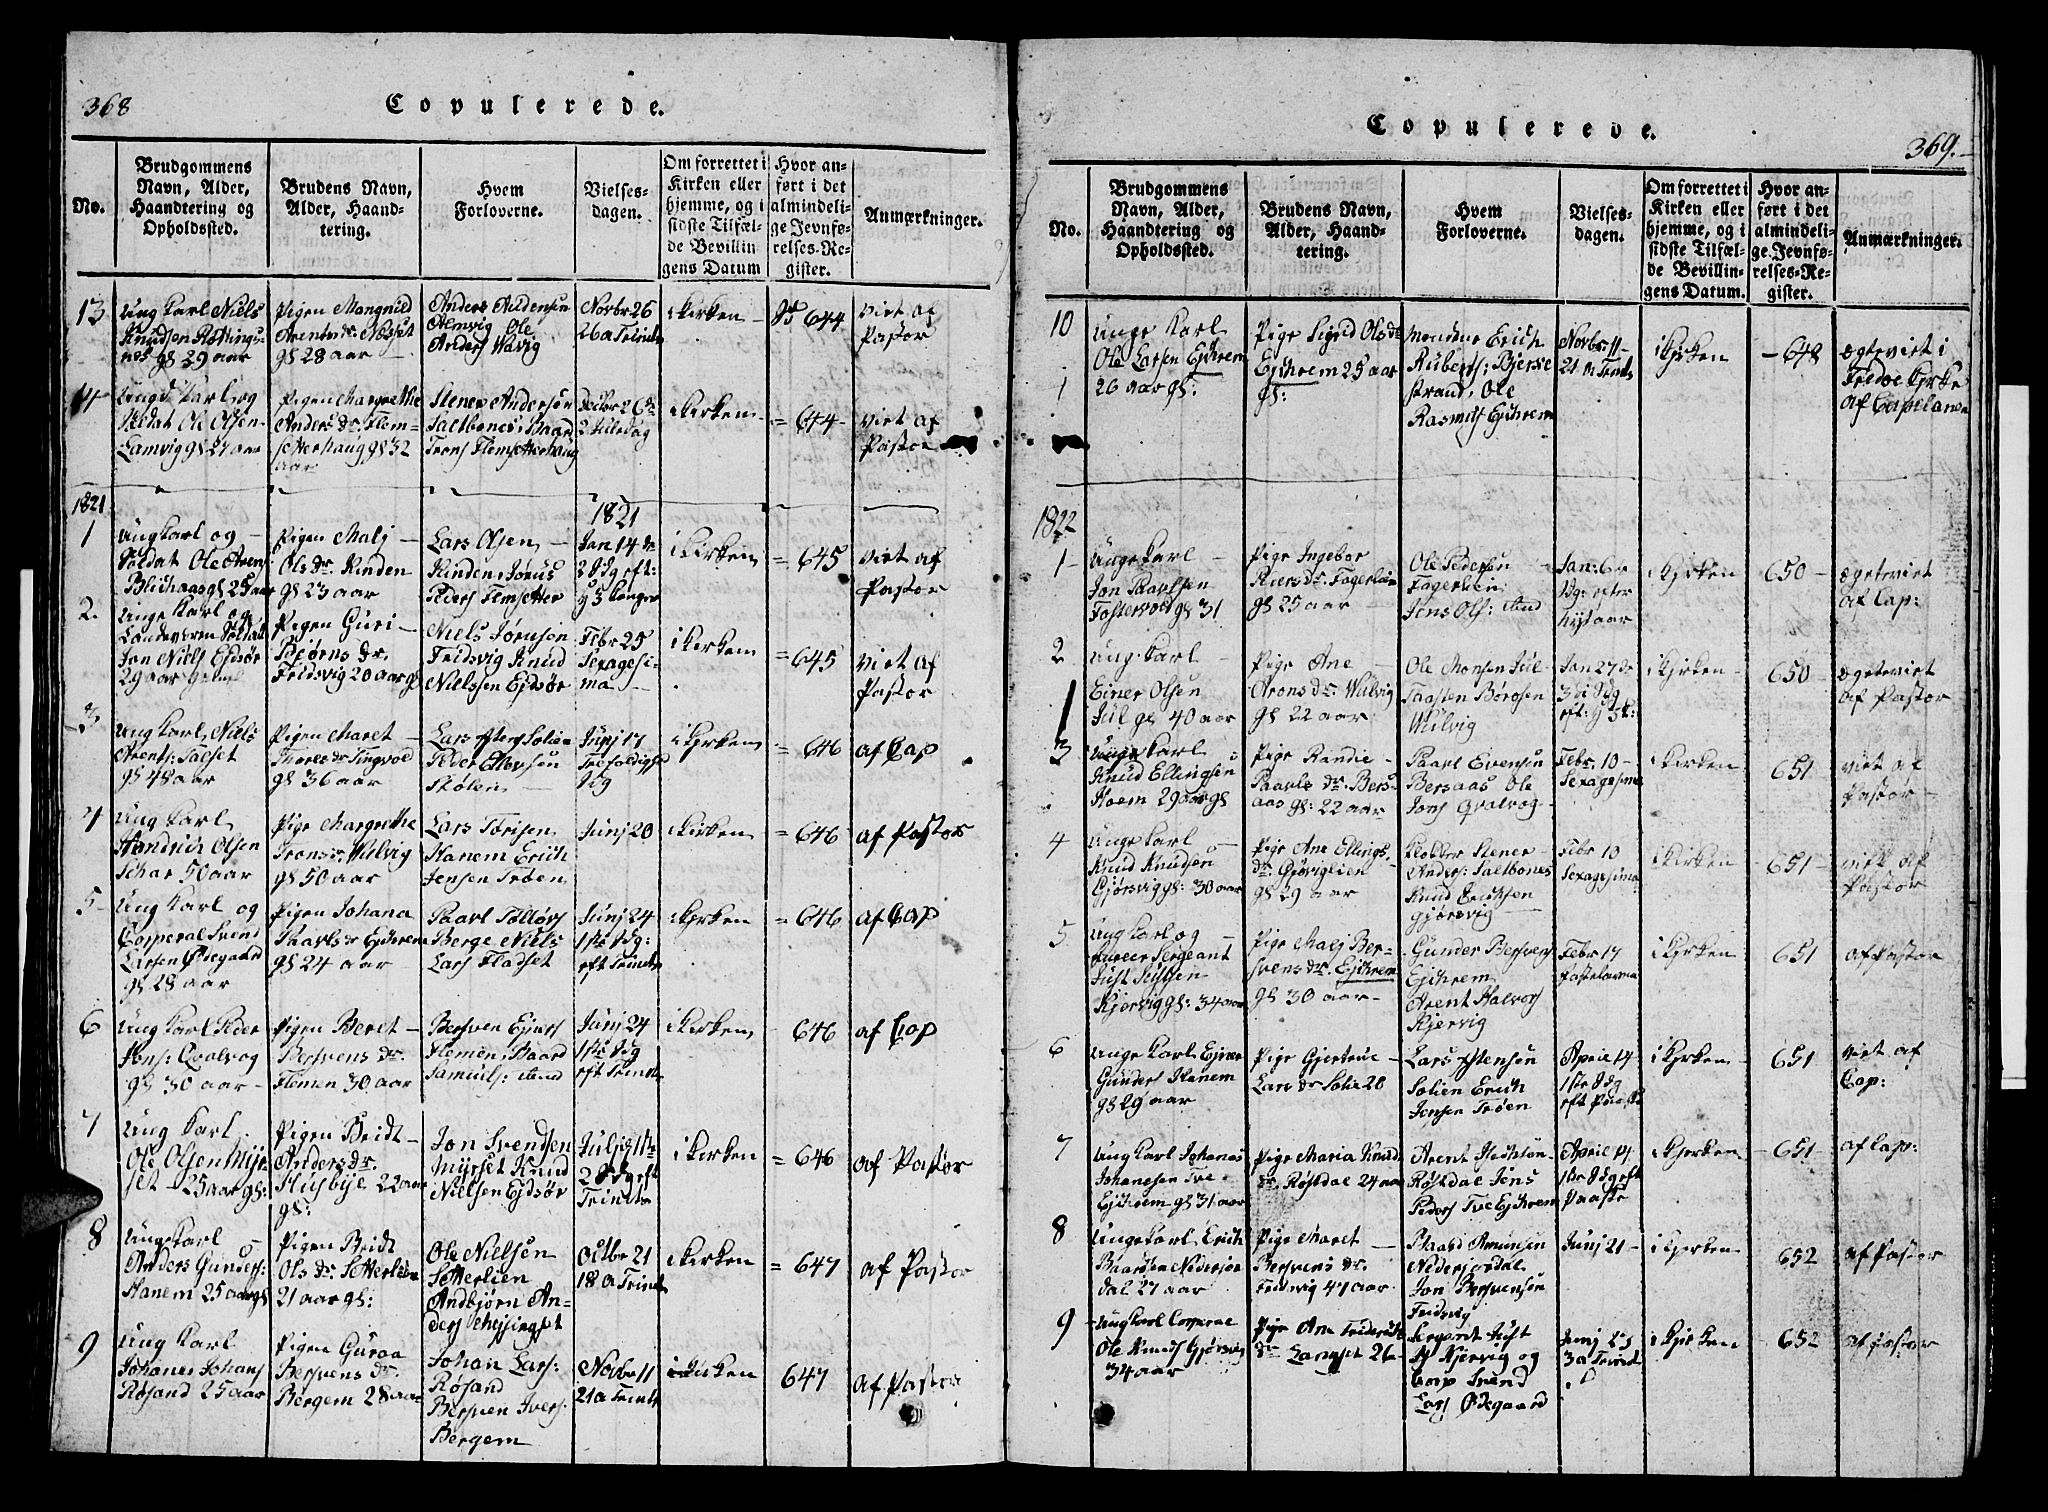 368
Copulerede.
No.
Brudgommens Navn, Alder, Haandtering og Opholdssted.
Brudens Navn, Alder, Haandtering.
Hvem Forloverne.
Vielsesdagen.
Om forrettet i Kirken eller hjemme, og i sidste Tilfælde Bevillingens Datum
Hvor anført i det almindelige Jevnførelses-Register.
Anmærkninger.
13
Ung Karl Niels
Knudsen
29 aar
Pigen Mangnild
Arents dr. Næsset
gl 28 aar
Anders Auldensen
Almvig Ole
Anders Wavig
Novbr 26
26 a Trinits
i Kirken
644
viet af
Pastor
14
Soldat Ole Olsen
Lamvig gl 27 aar
Pigen Margrethe
Anders dr. Flem-
setterhaug gl 32
aar
Stener Andersen
Saltbones, Baar
Trons Flemsetterhaug
Decbr 26 de
2 Juledag
i Kirken
= 644
viet af
Pastor
1821
1821
1
Ung Karl og
Soldat Ole Aren
25 aar
Pigen Malj
Ols dr. Kinden
gl 23 aar
Lars Olsen
Kinden, Jørus
Peders Flemsetter
Jan 14 de
2 Sdg eft:
i Kirken
= 645
viet af
Pastor
2.
Unge Karl og
Landevern Soldat
Jon Niels Ejdsør
29 aar gamel
Pigen Guri
Bjørns dr.
Fridsvig 20 aar gl
Niels Jørusen
Fridsvig Knud
Nielssen Ejdsør
Febr 25
Sexagesi-
ma
i Kirken
= 645
viet af
Pastor
3
Ung Karl, Niels
Arents: Salset
gl 48 aar
Pigen Maret
Thores dr Tingvold
gl 36 aar
Lars Solien
Peder Ellevsen
Skølen
Junj 17
Sdg
i Kirken
= 646
af Cap
4
Ung Karl
Hendrich Olsen
50 aar
Pige Margrethe
Irons dr. Wulvig
gl 50 aar
Lars Torisen
Hanem Erich
Jensen Trøen
Junj 20
i Kirken
= 646
af Pastor
5
Ung Karl og
Corperal Svend
Larsen Ødegaard
gl 28 aar
Pigen Johana
Paarls dr Ejdhrem
gl 24 aar
Paarl Tollørs
Berge Niels
Lars Fladset
Junj 24
1ste Sdg:
eft Trinits
i Kirken
= 646
af Cap
6
Ung Karl Peder
Jons: Qvalvog
gl 30 aar
Pigen Beret
Bersvens dr.
Flemen 30 aar
Bersven Ejners
Flemen, Baard
Samuels: ibid
Junj 24
1ste Sdg
eft Trinits
i Kirken
646
af Cap
7
Ung Karl
Ole Olsen Myr-
set 25 aar gl:
Pigen Bridt
Anders dr.
Husbye 22 aar
gl:
Jon Svendsen
Myrset Knud
Nielsen Ejdsør
Julj 1ste
2 Sdg eft
Trinits
i Kirken
= 646
af Pastor
8
Unge Karl
Anders Gunders:
Hanem 25 aar gl
Pigen Bridt
Ols dr. Setterlien
21 aar gl:
Ole Nielsen
Setterlien
Andbjørn An-
ders
Octbr 21
18 a Trinit
i Kirken
= 647
af Pastor
9
Ung Karl
Johanes Johans
Røsand 25 aar
Pigen Guraa
Bersvens dr.
Bergem 28 aar
Johan Lars:
Røsand
Bersven Ivers:
Bergem
Novbr 11
21 a Trinits
i Kirken
647
af Pastor
Copulerede.
369.
No.
Brudgommens Navn, Alder, Haandtering og Opholdssted.
Brudens Navn, Alder, Haandtering.
Hvem Forloverne.
Vielsesdagen.
Om forrettet i Kirken eller hjemme, og i sidste Tilfælde Bevillingens Datum.
Hvor anført i det almindelige Jevnførelses-Register.
Anmærkninger.
10
Unge Karl
Ole Larsen Ejdhrem
26 aar gl:
Pige Sigrid Ols dr
Ejdhrem 25 aar
gl:
Erich
Ruberts: Bjerke
strand, Ole
Rasmus Ejdhrem
Novbr 11
21 a Trinits
i Kjrken
648
Egteviet i
Fredøe Kjrke
af Capelanen
1822
1
Unge Karl
Jon Paarlsen
Fostervold gl 31
Pige Ingebor
Fagerlien
gl 25 aar
Ole Pedersen
Fagerlien
Jens Ols: ibid
Jan: 6te
Sdg: efter
Nytaar
i Kjrken
650
Egteviet
af Cap:
2
Ung Karl
Einer Olsen
Jul gl 40 aar
Pige Ane
Arons dr. Wulvig
gl 22 aar
Ole Monsen Jul
Wulvig
Jan 27 de
3 die Sdg
i Kjrken
650
Egteviet
af Pastor
3
Unge Karl
Knud Ellingsen
Hoem 29 aar gl
Pige Randie
Paarls dr. Bers-
aas gl: 22 aar
Paarl Evensen
Bersaas Ole
Jons Qvalvog
Febr. 10
Sexagesima
i Kirken
651
viet af
Pastor
4
Unge Karl
Knud Knudsen
Gjørsvig gl: 30 aar
Pige Ane Ellings
dr. Gjøviglien
gl 29 aar
Klokker Stener
Anders: Saltbones
Knud Erichsen
Gjørsvig
Febr 10
Sexagesima
i Kirken
651
viet af
Pastor
5
Ung Karl og
Fureer Sergeant
Just
Kjørvig gl: 34 aar
Pige Malj Ber-
svens dr. Ejdhrem
gl 30 aar
Gunder Bersvens
Ejdhrem
Arent Halvors
Kjervig
Febr 17
Fastelavns
i Kjrken
651
af Pastor
6
Unge Karl Ejner
Gunders Hanem
gl 29 aar
Pige Gjertrue
Lars dr Solie 20
Lars
Solien Erich
Jensen Trøen
April 14
1ste Sdg
eft Paaske
i Kjrken
651
viet af
Cap:
7
Ung Karl Johanes
Johanesen Tve-
Ejdhrem gl 31 aar
Pige Maria Knud
dr. Røstdal 24 aar
Arent
Røstdal Jens
Peders Tve Ejdhrem
April 14
1ste Sdg eft
Paaske
i Kjrken
651
af Cap:
8
Unge Karl Erich
Baardsen Nedersjør
dal 27 aar
Pige Maret
Bersvens dr.
Fredsvig 47 aar
Baard Amunsen
Nedersjørdal
Jon Bersvensen
Fredsvig
Junj 21
i Kjrken
652
af Pastor
9
Ung Karl Corperal
Ole Knuds Gjørsvig
34 aar
Pige Ane Frederich
dr 26
Sergeant Just
Kjervig og
Corp Svend
Lars Ødegaard
Junj 23
3 a Trinit
i Kjrken
652
af Pastor